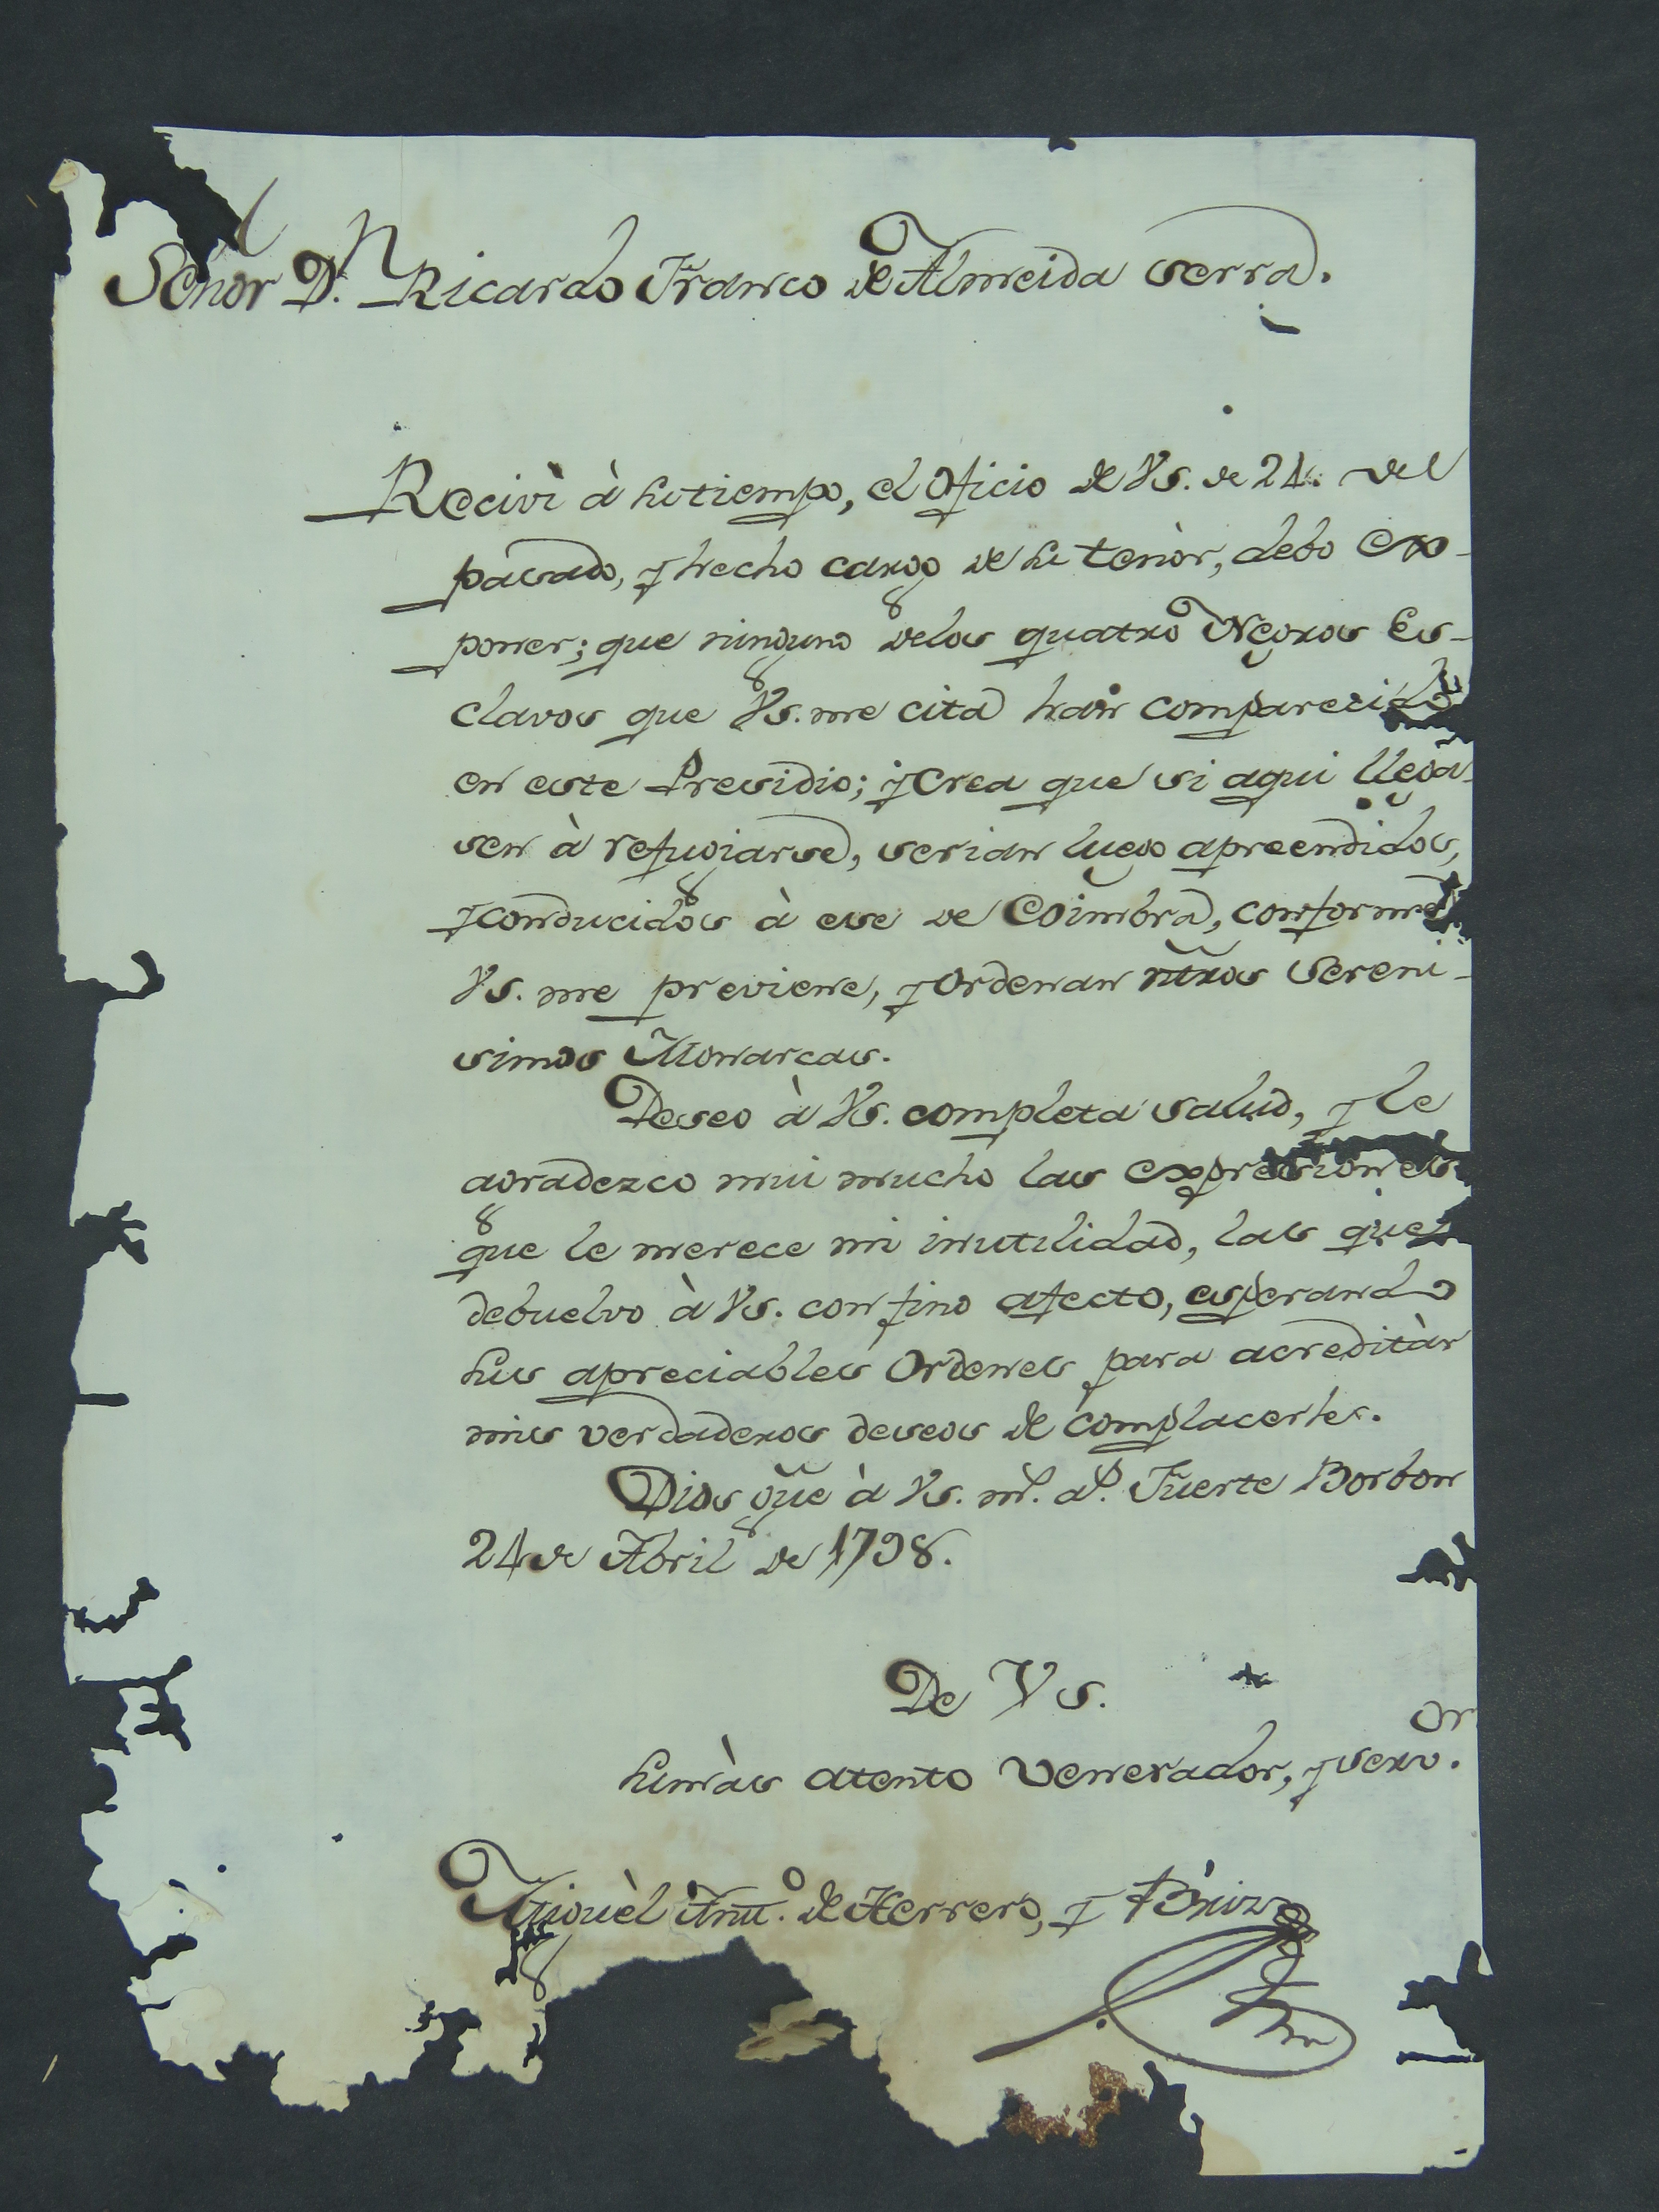 Señor D.n Ricardo Franco de Almeida Serra.
Recivì à su tiempo, el Oficio de VS. de 24. del
pasado, y hecho cargo de su tenòr, debo ex-
poner; que ninguno delos quatro Negros Es-
clavos que VS. me cita han comparecido
en este Presidio; y crea que si aqui llega-
sen à refugiarse, serian luego apreendidos,
y conducidos à ese de Coimbra, conforme
VS. me previene, y Ordenan ntros Sereni-
simos Monarcas.
Deseo à VS. completa salud, y le
agradezco mui mucho las expresiones
que le merece mi inutilidad, las que
debuelvo à VS. con fino afecto, esperando
sus apreciables Ordenes para acreditàr
mis verdaderos deseos de complacerle.
Dios gue à VS. m.s a.s Fuerte Borbon
24 de Abril de 1798.
De VS.
su màs atento Venerador, y serv.or
Miguèl Ant.o de Herrero, y